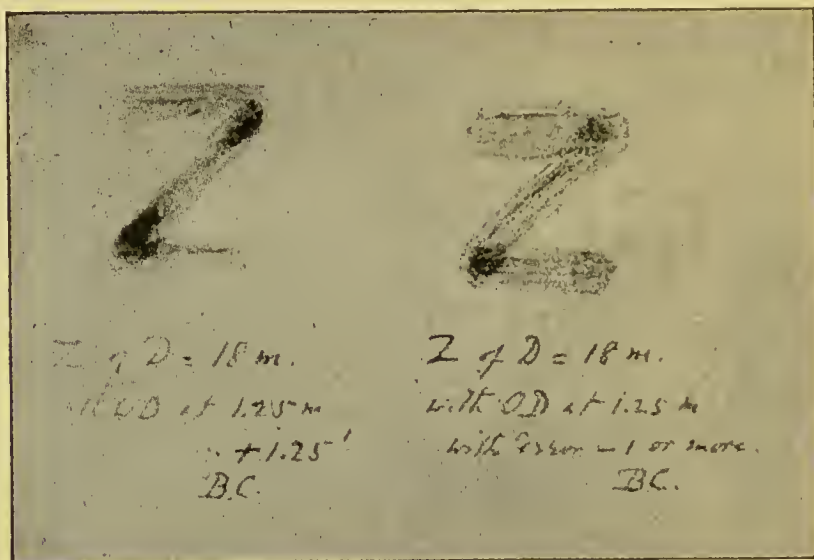 Z Z
Z of D = 18 m.
OD at 1.25 m
+1.25
B.C.
Z of D = 18 m.
with OD at 1.25 m
with error - 1 or more.
B.C.